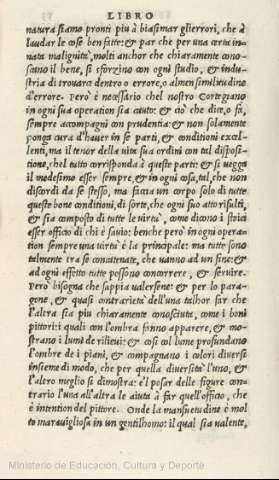 LIBRO
natura siamo pronti piu à biasimar glierrori, che à
laudar le cose ben fatte: & par che per una certa inn
nata malignità, molti anchor che chiaramente cono-
scano il bene, si sforzino con ogni studio, & indu-
stria di trouarci dentro o errore, o almen similitudine
d'errore. Però è necessario chel nostro Cortegiano
in ogni sua operation sia cauto: & ciò che dice, o fa,
sempre accompagni con prudentia: & non solamente
ponga cura d'hauer in se parti, & conditioni excel-
lenti, ma il tenor della uita sua ordini con tal disposi-
tione, chel tutto corrisponda à queste parti: & si uegga
il medesimo esser sempre, & in ogni cosa, tal, che non
discordi da se stesso, ma faccia un corpo solo di tutte
queste bone conditioni, di sorte, che ogni suo atto risulti,
& sia composto di tutte le uirtù, come dicono i stoici
esser officio di chi è sauio: benche però in ogni opera-
tion sempre una uirtù è la principale: ma tutte sono
talmente tra se concatenate, che uanno ad un fine: &
ad ogni effetto tutte possono concorrere, & seruire.
Però bisogna che sappia ualersene: & per lo para-
gone, & quasi contrarietà dell'una talhor far che
l'altra sia piu chiaramente conosciuta, come i boni
pittori: i quali con l'ombra fanno apparere, & mo-
strano i lumi de rilieui: & cosi col lume profundano
l'ombre de i piani, & compagnano i colori diuersi
insieme di modo, che per quella diuersità l'uno, &
l'altro meglio si dimostra: e'l posar delle figure con-
trario l'una all'altra le aiuta à far quell'officio, che
è intention del pittore. Onde la mansuetudine è mol
to marauigliosa in un gentilhomo: il qual sia ualente,
Ministerio de Educación, Cultura y Deporte